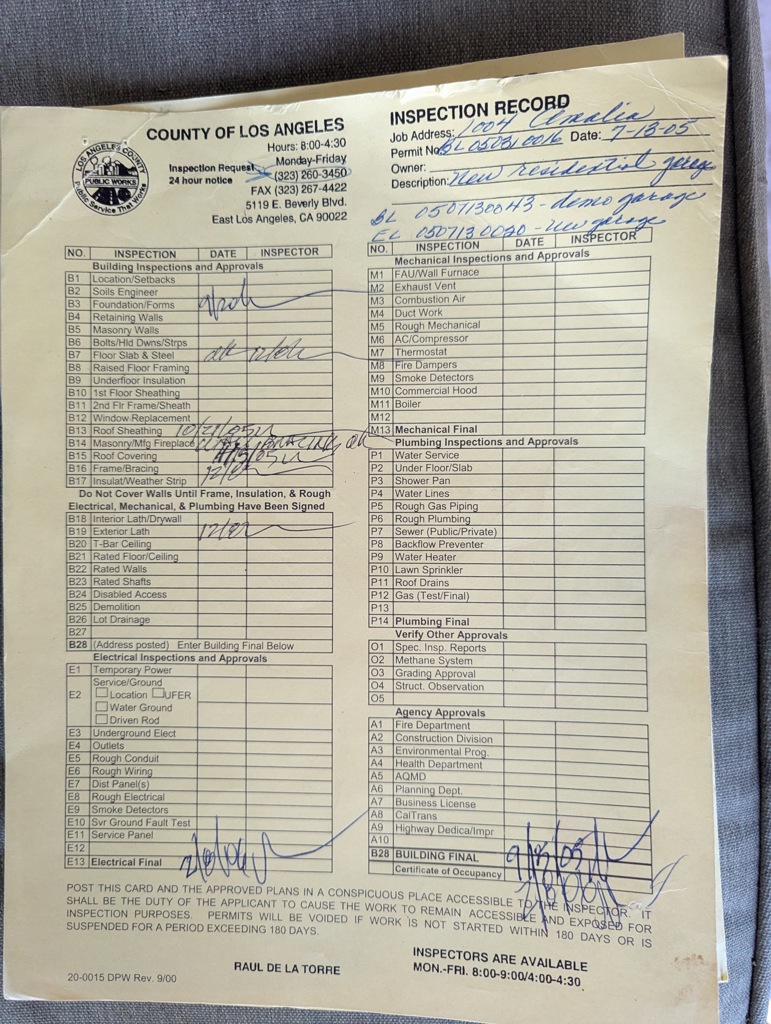 COUNTY OF LOS ANGELES
Hours: 8:00-4:30
Monday-Friday
Inspection Request
24 hour notice
(323) 260-3450
FAX (323) 267-4422
5119 E. Beverly Blvd.
East Los Angeles, CA 90022
LOS ANGELES COUNTY
PUBLIC WORKS
Public Service That Works
INSPECTION RECORD
Job Address: 1004 Amalia
Permit No. BL 050310016 Date: 7-13-05
Owner:
Description: New residential garage
BL 0507130043 - demo garage
EL 0507130020 - new garage
NO. INSPECTION DATE INSPECTOR
Building Inspections and Approvals
B1 Location/Setbacks
B2 Soils Engineer
B3 Foundation/Forms
B4 Retaining Walls
B5 Masonry Walls
B6 Bolts/Hld Dwns/Strps
B7 Floor Slab & Steel
B8 Raised Floor Framing
B9 Underfloor Insulation
B10 1st Floor Sheathing
B11 2nd Flr Frame/Sheath
B12 Window Replacement
B13 Roof Sheathing 10/21/05
B14 Masonry/Mfg Fireplace
B15 Roof Covering
B16 Frame/Bracing
B17 Insulat/Weather Strip
Do Not Cover Walls Until Frame, Insulation, & Rough
Electrical, Mechanical, & Plumbing Have Been Signed
B18 Interior Lath/Drywall
B19 Exterior Lath
B20 T-Bar Ceiling
B21 Rated Floor/Ceiling
B22 Rated Walls
B23 Rated Shafts
B24 Disabled Access
B25 Demolition
B26 Lot Drainage
B27
B28 (Address posted) Enter Building Final Below
Electrical Inspections and Approvals
E1 Temporary Power
Service/Ground
E2 Location UFER
Water Ground
Driven Rod
E3 Underground Elect
E4 Outlets
E5 Rough Conduit
E6 Rough Wiring
E7 Dist Panel(s)
E8 Rough Electrical
E9 Smoke Detectors
E10 Svr Ground Fault Test
E11 Service Panel
E12
E13 Electrical Final
NO. INSPECTION DATE INSPECTOR
Mechanical Inspections and Approvals
M1 FAU/Wall Furnace
M2 Exhaust Vent
M3 Combustion Air
M4 Duct Work
M5 Rough Mechanical
M6 AC/Compressor
M7 Thermostat
M8 Fire Dampers
M9 Smoke Detectors
M10 Commercial Hood
M11 Boiler
M12
M13 Mechanical Final
Plumbing Inspections and Approvals
P1 Water Service
P2 Under Floor/Slab
P3 Shower Pan
P4 Water Lines
P5 Rough Gas Piping
P6 Rough Plumbing
P7 Sewer (Public/Private)
P8 Backflow Preventer
P9 Water Heater
P10 Lawn Sprinkler
P11 Roof Drains
P12 Gas (Test/Final)
P13
P14 Plumbing Final
Verify Other Approvals
O1 Spec. Insp. Reports
O2 Methane System
O3 Grading Approval
O4 Struct. Observation
O5
Agency Approvals
A1 Fire Department
A2 Construction Division
A3 Environmental Prog.
A4 Health Department
A5 AQMD
A6 Planning Dept.
A7 Business License
A8 CalTrans
A9 Highway Dedica/Impr
A10
B28 BUILDING FINAL
Certificate of Occupancy
POST THIS CARD AND THE APPROVED PLANS IN A CONSPICUOUS PLACE ACCESSIBLE TO THE INSPECTOR. IT
SHALL BE THE DUTY OF THE APPLICANT TO CAUSE THE WORK TO REMAIN ACCESSIBLE AND EXPOSED FOR
INSPECTION PURPOSES. PERMITS WILL BE VOIDED IF WORK IS NOT STARTED WITHIN 180 DAYS OR IS
SUSPENDED FOR A PERIOD EXCEEDING 180 DAYS.
RAUL DE LA TORRE
INSPECTORS ARE AVAILABLE
MON.-FRI. 8:00-9:00/4:00-4:30
20-0015 DPW Rev. 9/00